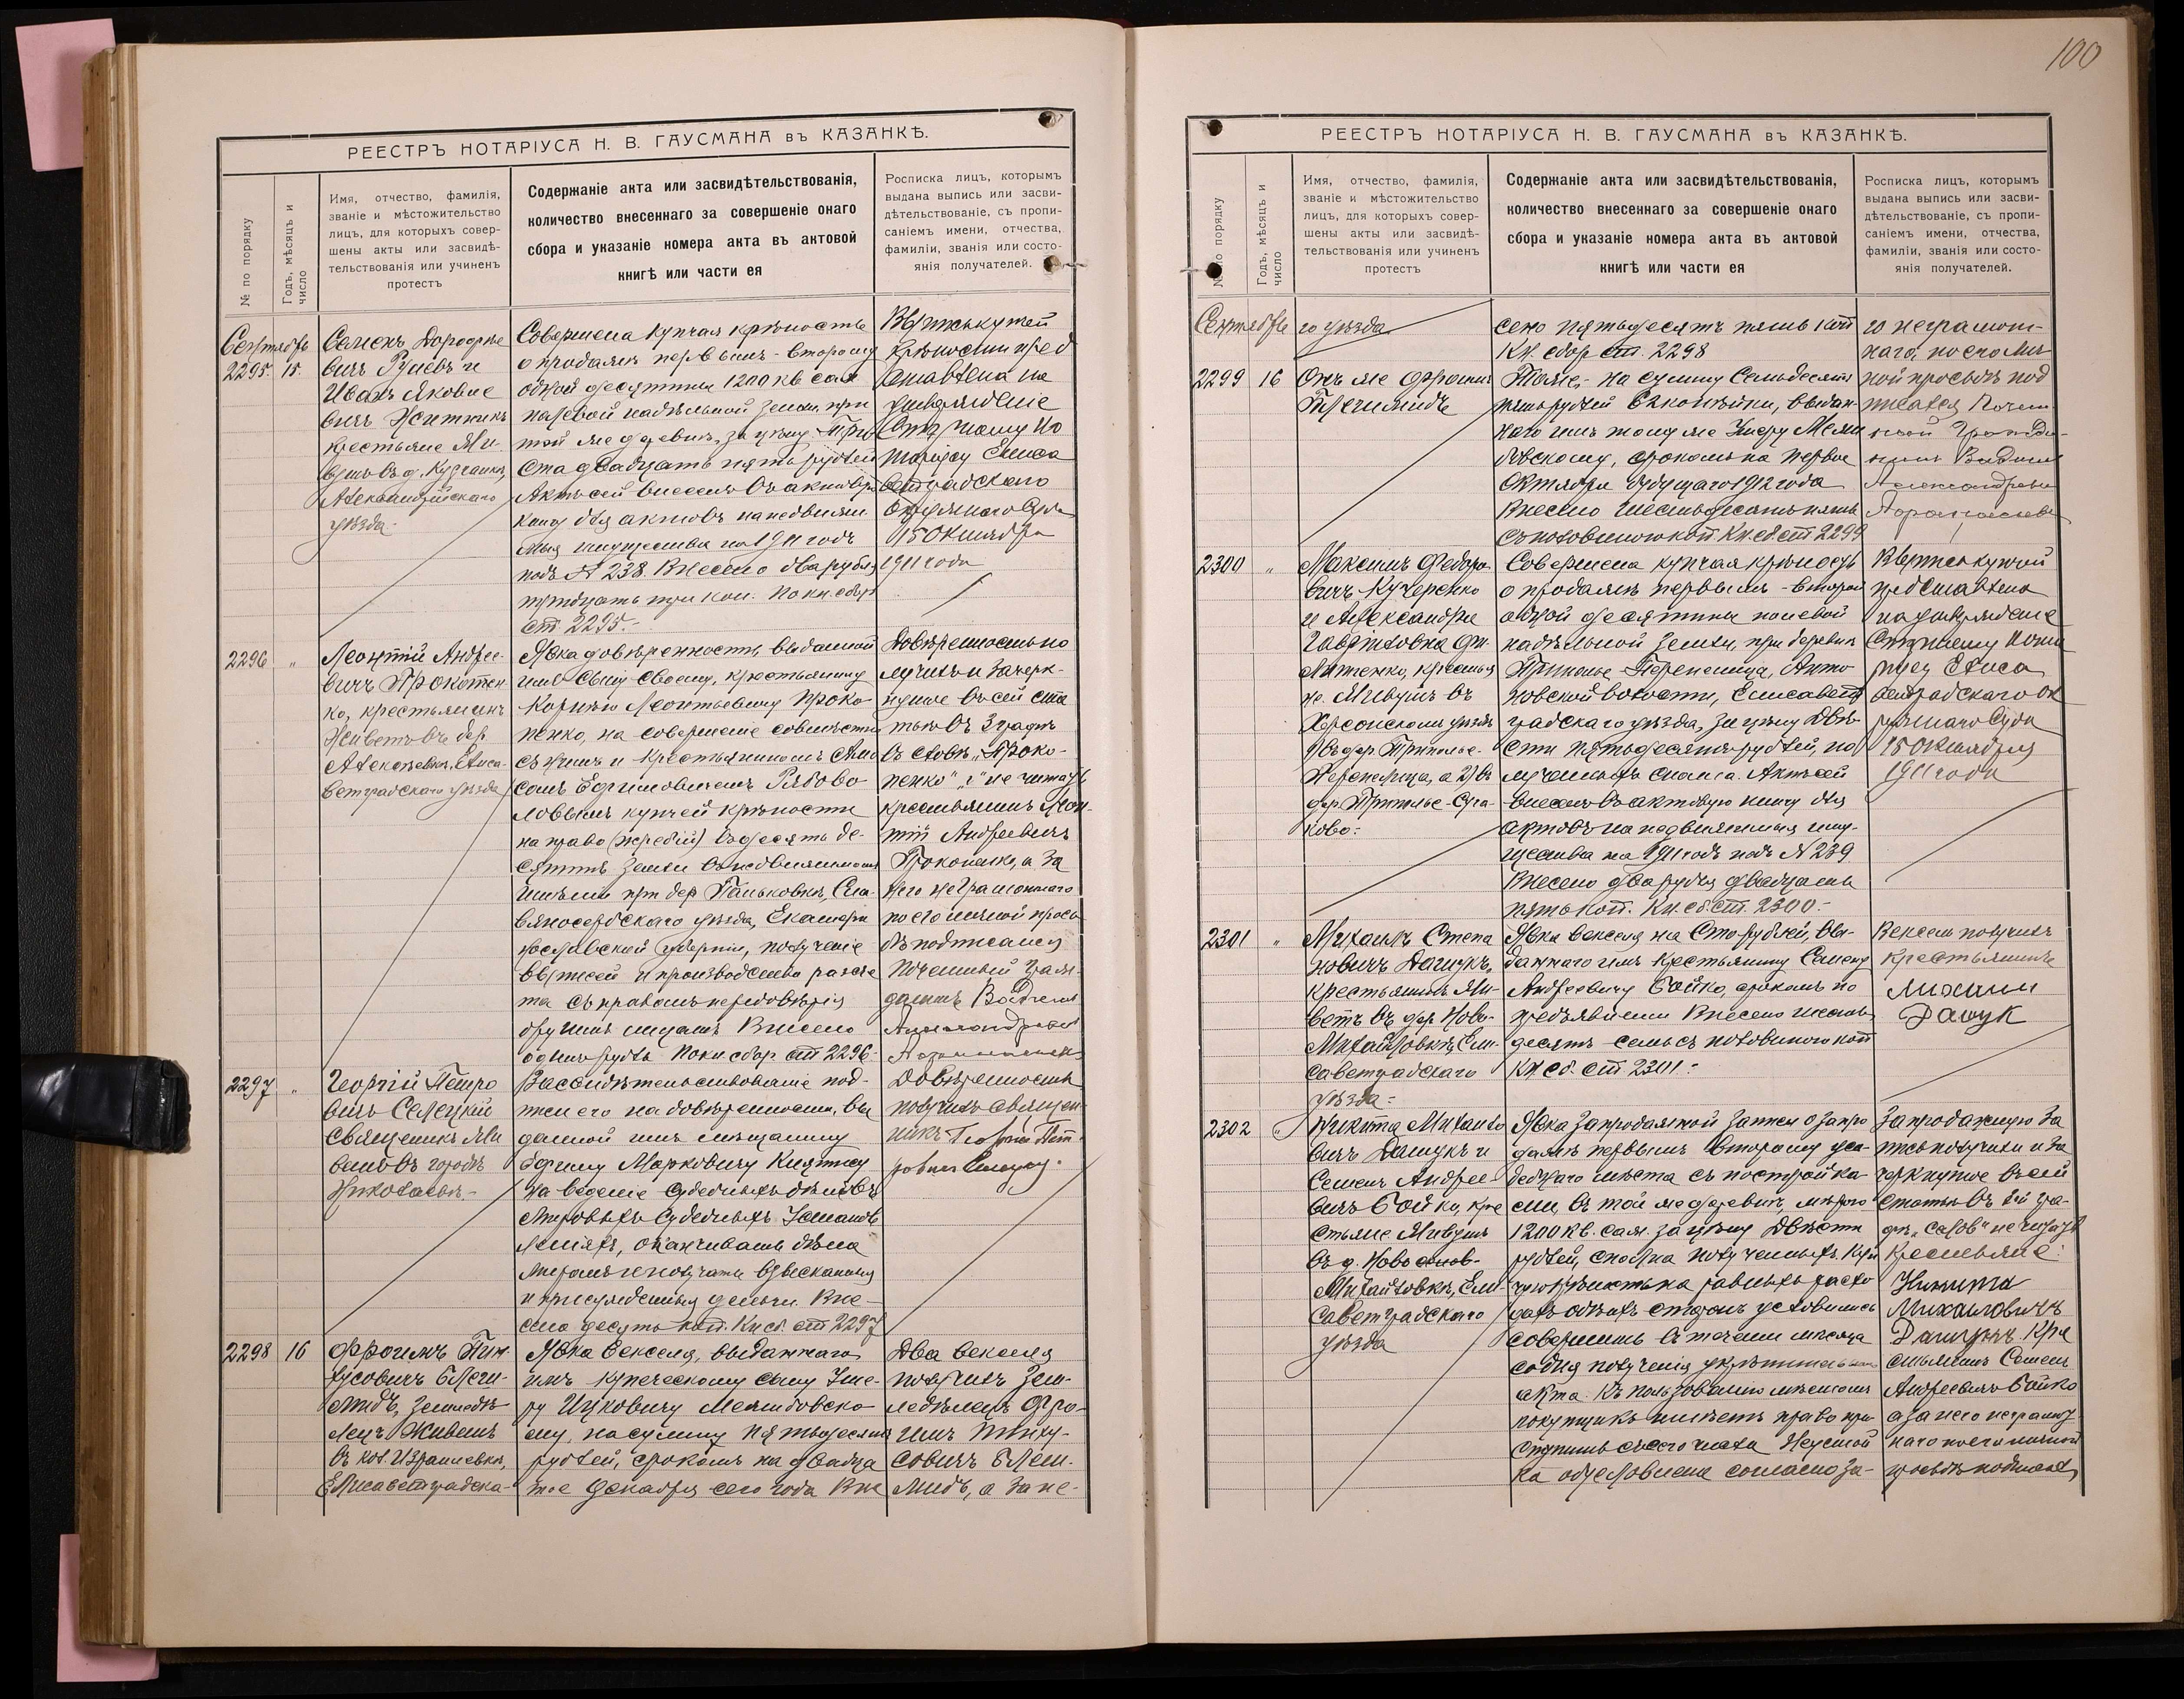 100
РЕЕСТРЪ НОТАРІУСА Н. В. ГАУСМАНА въ КАЗАНКѢ.
№ по порядку
Годъ, мѣсяцъ и число
Имя, отчество, фамилія,
званіе и мѣстожительство
лицъ, для которыхъ совер-
шены акты или засвидѣ-
тельствованія или учиненъ
протестъ
Содержаніе акта или засвидѣтельствованія,
количество внесеннаго за совершеніе онаго
сбора и указаніе номера акта въ актовой
книгѣ или части ея
Росписка лицъ, которымъ
выдана выпись или засви-
дѣтельствованіе, съ пропи-
саніемъ имени, отчества,
фамиліи, званія или состо-
янія получателей.
Сентябрь
2295. 15.
Семенъ Дорофее
вичъ и
Иванъ Яковле
вичъ Житникъ
крестьяне жи-
вутъ въ д. Курганкѣ,
Александрійскаго
уѣзда.
Совершена купчая крѣпость
о продажѣ первымъ - второму
одной десятины 1200 кв саж
полевой надѣльной земли, при
той же деревнѣ, за цѣну Три
ста двадцать пять рублей
Актъ сей внесенъ въ актовую
книгу для актовъ на недвижи
мыя имущества на 1911 годъ
подъ № 238. Внесено два рубля
тридцать три коп. По кн. сбор
ст 2295.-
Выпись купчей
крѣпости пред
ставлена на
утвержденіе
Старшему Но
таріусу Елиса
ветградскаго
Окружнаго Суда
15 Октября
1911 года
2296 "
Леонтій Андрее-
вичъ Прокопен
ко, крестьянинъ
живетъ въ дер.
Алексѣевкѣ, Елиса-
ветградскаго уѣзда
Явка довѣренности, выданной
имъ сыну своему, крестьянину
Корнѣю Леонтьевичу Проко
пенко, на совершеніе совмѣстно
съ нимъ и крестьяниномъ
Ефимовичемъ Рябово
ловымъ купчей крѣпости
на право (жребій) въ десять де-
сятинъ земли въ недвижимомъ
имѣніи при дер Паньковкѣ, Сла-
вяносербскаго уѣзда, Екатери
нославской губерніи, полученіе
выписей и производство расче
та съ правомъ передовѣрія
другимъ лицамъ Внесено
одинъ рубль По кн сбор ст 2296.
Довѣренность по
лучилъ и зачерк-
нутое въ сей ста
тьѣ въ 3 графѣ
въ словѣ „Проко-
пенко" „ не читать
крестьянинъ Леон-
тій Андреевичъ
Прокопенко, а за
него неграмотнаго
по его личной прось
бѣ подписался
Почетный Граж-
данинъ
2297 "
Георгій Петро
вичъ Селецкій
священникъ жи
ветъ въ городѣ
Николаевѣ.-
Засвидѣтельствованіе под-
писи его на довѣренности, вы
данной имъ мѣщанину
Ефиму Марковичу
на веденіе судебныхъ дѣлъ въ
мировыхъ судебныхъ Установ
леніяхъ, оканчивать дѣла
миромъ и получать взысканныя
и присужденныя деньги. Вне-
сено десять коп. Кн сб. ст 2297
Довѣренность
получилъ священ-
никъ Георгій Пет-
ровичъ Селецкій.
2298 16
Фроимъ Пин
хусовичъ Блехш-
мидъ, земледѣ
лецъ. Живетъ
въ кол. Израилевкѣ,
Елисаветградска-
Явка векселя, выданнаго
имъ купеческому сыну Уше-
ру Ицковичу Межибовско-
му, на сумму Пятьдесятъ
рублей, срокомъ на двадца
тое Декабря сего года Вне
Два векселя
получилъ зем-
ледѣлецъ Фро-
имъ Пинху-
совичъ Блехш-
мидъ, а за не-
РЕЕСТРЪ НОТАРІУСА Н. В. ГАУСМАНА въ КАЗАНКѢ.
№ по порядку
Годъ, мѣсяцъ и число
Имя, отчество, фамилія,
званіе и мѣстожительство
лицъ, для которыхъ совер-
шены акты или засвидѣ-
тельствованія или учиненъ
протестъ
Содержаніе акта или засвидѣтельствованія,
количество внесеннаго за совершеніе онаго
сбора и указаніе номера акта въ актовой
книгѣ или части ея
Росписка лицъ, которымъ
выдана выпись или засви-
дѣтельствованіе, съ пропи-
саніемъ имени, отчества,
фамиліи, званія или состо-
янія получателей.
Сентябрь
го уѣзда
сено пятьдесятъ пять коп
Кн. сбор ст. 2298
го неграмот-
наго, по его лич
2299 16
Онъ же Фроимъ
Блехшмидъ
Тоже, на сумму Семьдесятъ
рублей копѣйки, выдан-
наго имъ тому же Ушеру Межи
бовскому, срокомъ на первое
Октября будущаго 1912 года
Внесено шестьдесятъ пять
съ половиною коп Кн сб. ст 2299
ной просьбѣ под
писался Почет
ный Гражда-
нинъ
2300 "
Максимъ Федоро
вичъ Кучеренко
и Александръ
Гавриловъ
крестья
не. Живутъ въ
Херсонскомъ уѣздѣ
1) въ дер. Треполье-
Перепелица, а 2) въ
дер. Треполье-
ково:
Совершена купчая крѣпость
о продажѣ первымъ - второму
одной десятины полевой
надѣльной земли, при деревнѣ
Треполье-Перепелица,
новской волости, Елисавет
градскаго уѣзда, за цѣну Двѣ-
сти пятьдесятъ рублей, по
лученныхъ сполна. Актъ сей
внесенъ въ актовую книгу для
актовъ на недвижимыя иму-
щества на 1911 годъ подъ № 239
Внесено два рубля двадцать
пять коп. Кн. сб. ст. 2300.-
Выпись купчей
представлена
на утвержденіе
Старшему Нота
ріусу Елиса
ветградскаго Ок
ружнаго Суда
15 Октября
1911 года
2301 "
Михаилъ Степа
новичъ Дащукъ,
крестьянинъ Жи-
ветъ въ дер Ново-
Михайловкѣ, Ели-
саветградскаго
уѣзда.-
Явка векселя на Сто рублей, вы-
даннаго имъ крестьянину Семену
Андреевичу Бойко, срокомъ по
предъявленіи Внесено шесть
десятъ семь съ половиною коп
Кн сб. ст. 2301.-
Вексель получилъ
крестьянинъ
Михаил
Дащук
2302 "
Никита Михайло
вичъ Дащукъ и
Семенъ Андрее
вичъ Бойко, кре
стьяне Живутъ
въ д. Ново
Михайловкѣ, Ели
саветградскаго
уѣзда
Явка запродажной записи о запро
дажѣ первымъ второму уса-
дебнаго мѣста съ постройка-
ми, въ той же деревнѣ, мѣрою
1200 кв. саж. за цѣну Двѣсти
рублей, сполна полученныхъ. Куп
чую крѣпость на равныхъ расхо
дахъ обѣихъ сторонъ условились
совершить въ теченіи мѣсяца
со дня полученія
акта. Къ пользованію мѣстомъ
покупщикъ имѣетъ право при
ступить съ сего числа Неустой
ка обусловлена согласно за-
Запродажную за
пись получили и за
черкнутое въ сей
статьѣ въ 3й гра-
фѣ, „ не читать
Крестьяне:
Никита
Михаиловичъ
Дащукъ. Кре
стьянинъ Семенъ
Андреевичъ Бойко
а за него неграмот
наго по его личной
просьбѣ подписался